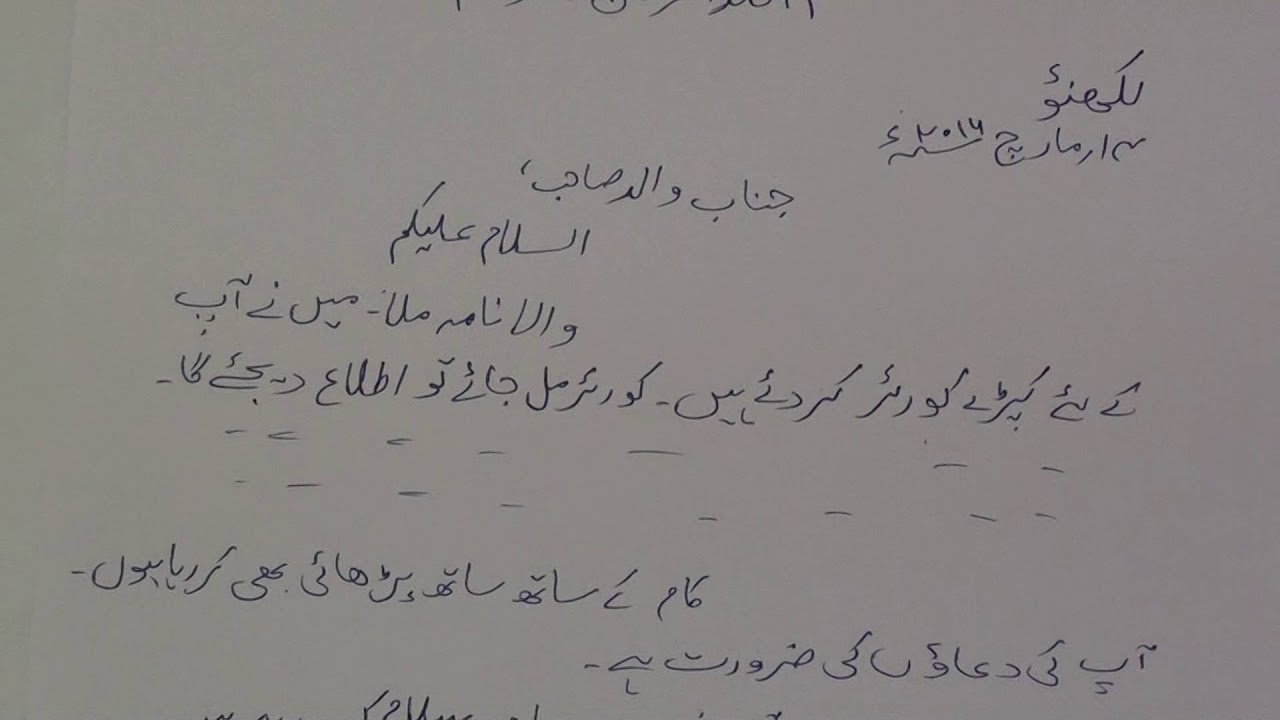 لکھنؤ
۱۴؍مارچ ۲۰۱۶ء
جناب والد صاحب،
السلام علیکم
والا نامہ ملا۔ میں نے آپ
کے لئے کپڑے کورئر کر دئے ہیں۔ کورئر مل جائے تو اطلاع دیجئے گا۔
کام کے ساتھ ساتھ پڑھائی بھی کر رہا ہوں۔
آپ کی دعاؤں کی ضرورت ہے۔